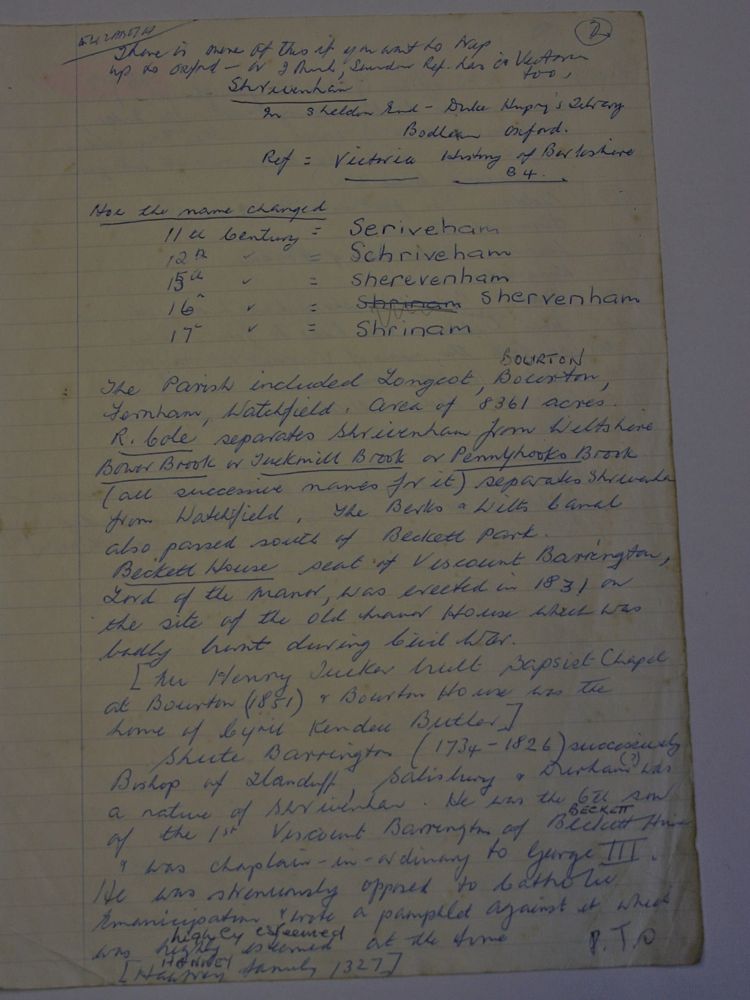 ELIZABETH
2
There is more of this if you want to
up to Oxford — or I think, Ref. has in Victoria
too,
Shrivenham
In Sheldon End - Duke Library
Oxford.
Ref = Victoria History of Berkshire
B4.
How the name changed
11th Century = Seriveham
12th " = Schriveham
15th " = Sherevenham
16" " = Shrinam Shervenham
17" " = Shrinam
BOURTON
The Parish included Longcot, Bourton,
Fernham, Watchfield. Area of 8361 acres.
R. Cole separates Shrivenham from Wiltshire
Bower Brook or Tuckmill Brook or Pennyhooks Brook
(all successive names for it) separates Shrivenham
from Watchfield. The Berks & Wilts Canal
also passed south of Beckett Park.
Beckett House seat of Viscount Barrington,
Lord of the Manor, was erected in 1831 on
the site of the old Manor House which was
badly burnt during Civil War.
[Mr Henry Tucker built Baptist Chapel
at Bourton (1851) & Bourton House was the
home of Cyril Butler]
Shute Barrington (1734-1826) successively
Bishop of Llandaff, Salisbury & Durham (?) was
a native of Shrivenham. He was the 6th son
BECKETT
of the 1st Viscount Barrington of Beckett House
" was chaplain-in-ordinary to George III.
He was strenuously opposed to Catholic
Emancipation & wrote a pamphlet against it which
highly esteemed
was highly esteemed at the time P.T.O
[ family 1327]